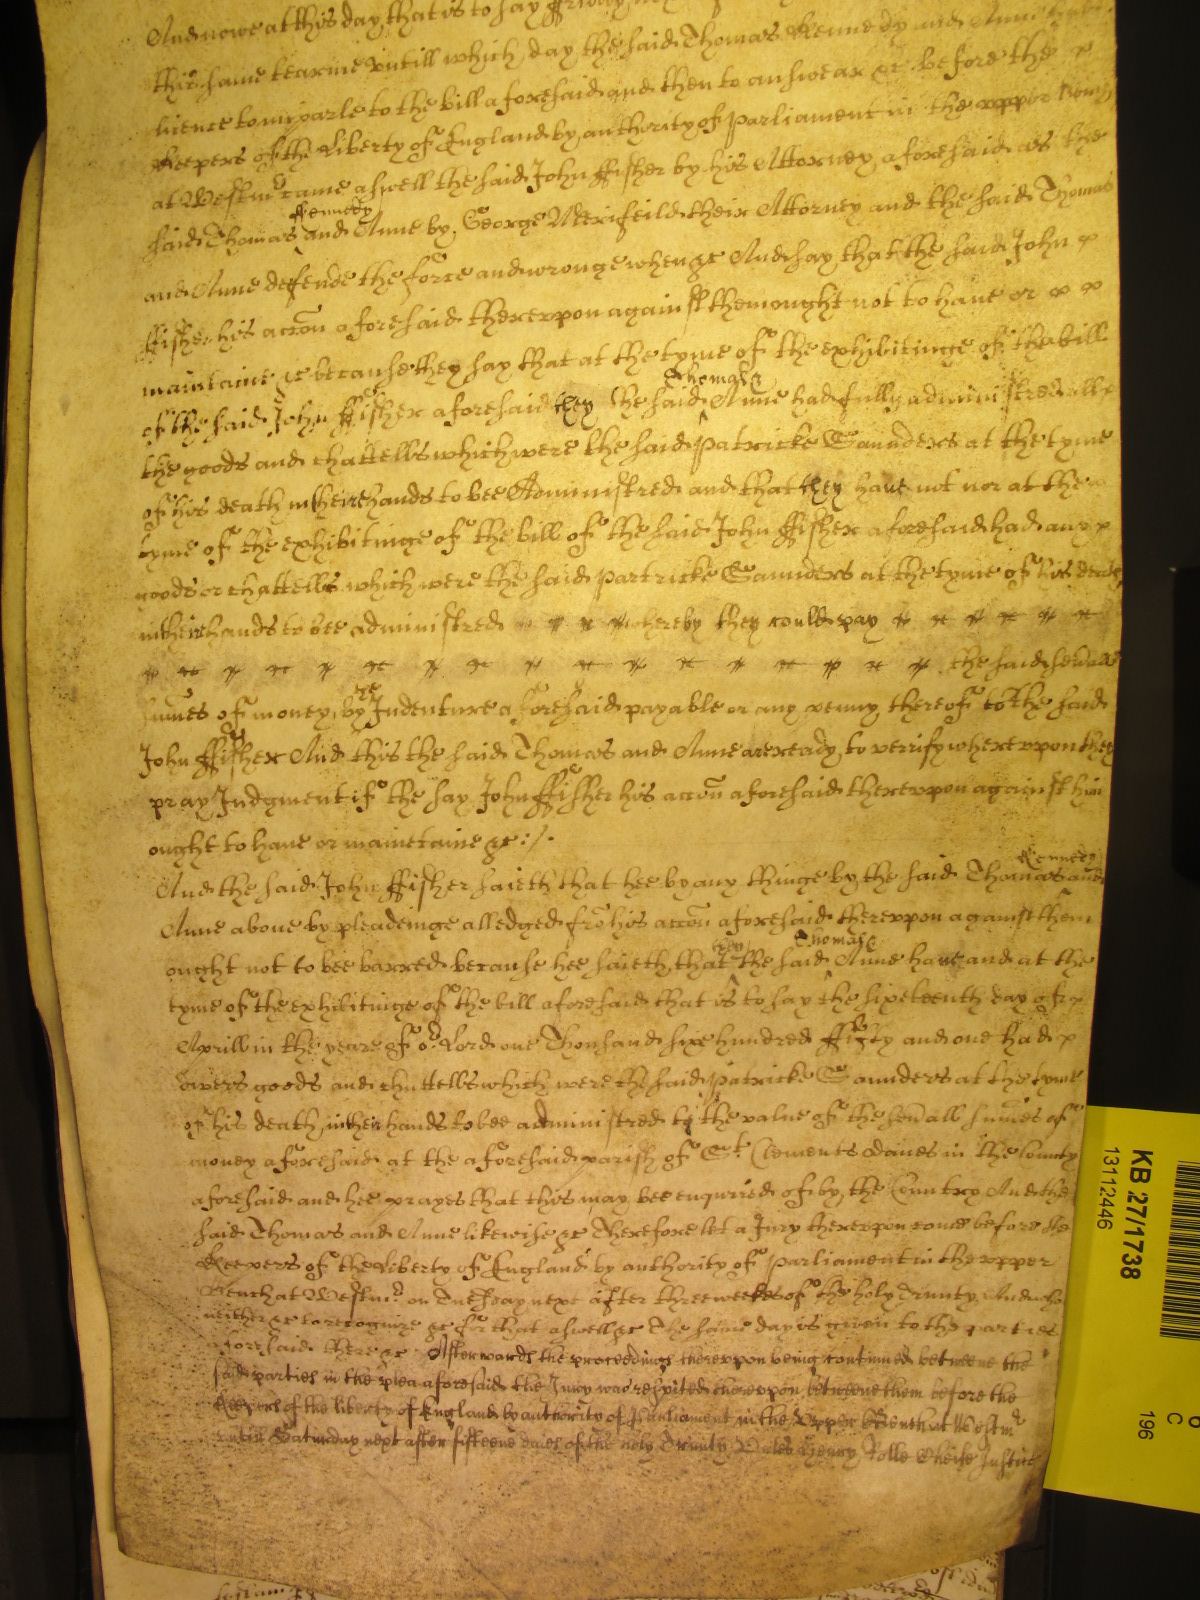 And nowe at this day, that is to say ffriday
this same tearme vntill which day the said Thomas Kennedy and Anne
licence to imparle to the bill aforesaid and then to answear &c before the
Keepers of the Liberty of England by authority of Parliament in the vpper Bench
at Westmr came aswell the said John ffisher by his Attorney aforesaid as the
said Thomas Kennedy and Anne by George Merifeild their Attorney and the said Thomas
and Anne defende the force and wronge when &c And say that the said John
ffisher his accon aforesaid therevpon against them ought not to haue or
maintaine &c because they say that at the tyme of the exhibitinge of the bill
of the said John ffisher aforesaid they the said Thomas & Anne had fully administred all
the goods and chattells which were the said Patricke Saunders at the tyme
of his death in their hands to bee Administred and that they haue not nor at the
tyme of the exhibitinge of the bill of the said John ffisher aforesaid had any
goods or chattells which were the said Partricke Saunders at the tyme of his death
in their hands to bee administred whereby they could pay
the said seuall
sumes of money, by ye Indenture aforesaid payable or any penny thereof to the said
John ffisher And this the said Thomas and Anne are ready to verify wherevpon they
pray Judgment if the say John ffisher his accon aforesaid therevpon against him
ought to haue or maintaine &c :/.
And the said John ffisher saieth that hee by any thinge by the said Thomas Kennedy and
Anne aboue by pleadeinge alledged fro his accon aforesaid therevpon against them
ought not to bee barred because hee saieth, that they the said Thomas & Anne haue and at the
tyme of the exhibitinge of the bill aforesaid that is to say the sixteenth day of
Aprill in the yeare of or Lord one Thousand sixe hundred ffifty and one had
divers goods and chattells which were the said Patricke Saunders at the tyme
of his death, in their hands to bee administred to the value of the seuall sumes of
money aforesaid at the aforesaid parish of St. Clements danes in the County
aforesaid and hee prayes that this may bee enquired of by, the Country And the
said Thomas and Anne likewise &c Therefore let a Jury therevpon come before the
Keepers of the Liberty of England by authority of Parliament in the vpper
Bench at Westmr. on Tuesday next after three weekes of the holy Trinity And who
neither &c to recognize &c for that aswell &c The same day is given to the parties
aforesaid there &c Afterwards the proceedings therevpon being continued betweene the
said parties in the plea aforesaid the Jury was respited therevpon betweene them before the
Keepers of the liberty of England by authority of Parliament in the Vpper Bench at Westmr
vntill Saturday next after fifteene daies of the holy Trinity Vnles Henry Rolle Cheife Justice
KB 27/1738
13112446
C
196